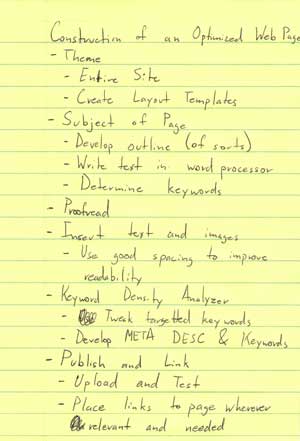 Construction of an Optimized Web Page
- Theme
- Entire Site
- Create Layout Templates
- Subject of Page
- Develop outline (of sorts)
- Write text in word processor
- Determine keywords
- Proofread
- Insert text and images
- Use good spacing to improve
readability
- Keyword Density Analyzer
- Tweak targetted keywords
- Develop META DESC & Keywords
- Publish and Link
- Upload and Test
- Place links to page wherever
relevant and needed